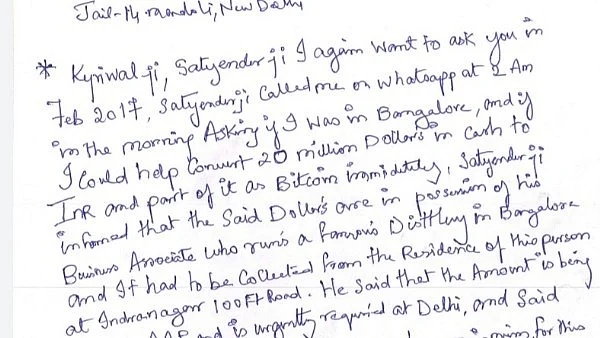 Jail-14, Mandoli, New Delhi
* Kejriwal ji, Satyender ji I again want to ask you in
Feb 2017, Satyenderji Called me on whatsapp at 2 Am
in the morning Asking if I was in Bangalore, and if
I Could help Convert 20 million Dollars in Cash to
INR and part of it as Bitcoin immidiately, Satyender ji
informed that the Said Dollars are in possession of his
Business Associate who runs a famous Distillery in Bangalore
and If had to be Collected from the Residence of this person
at Indranagar 100 Ft Road. He Said that the Amount is being
and is urgently required at Delhi, and Said
for this